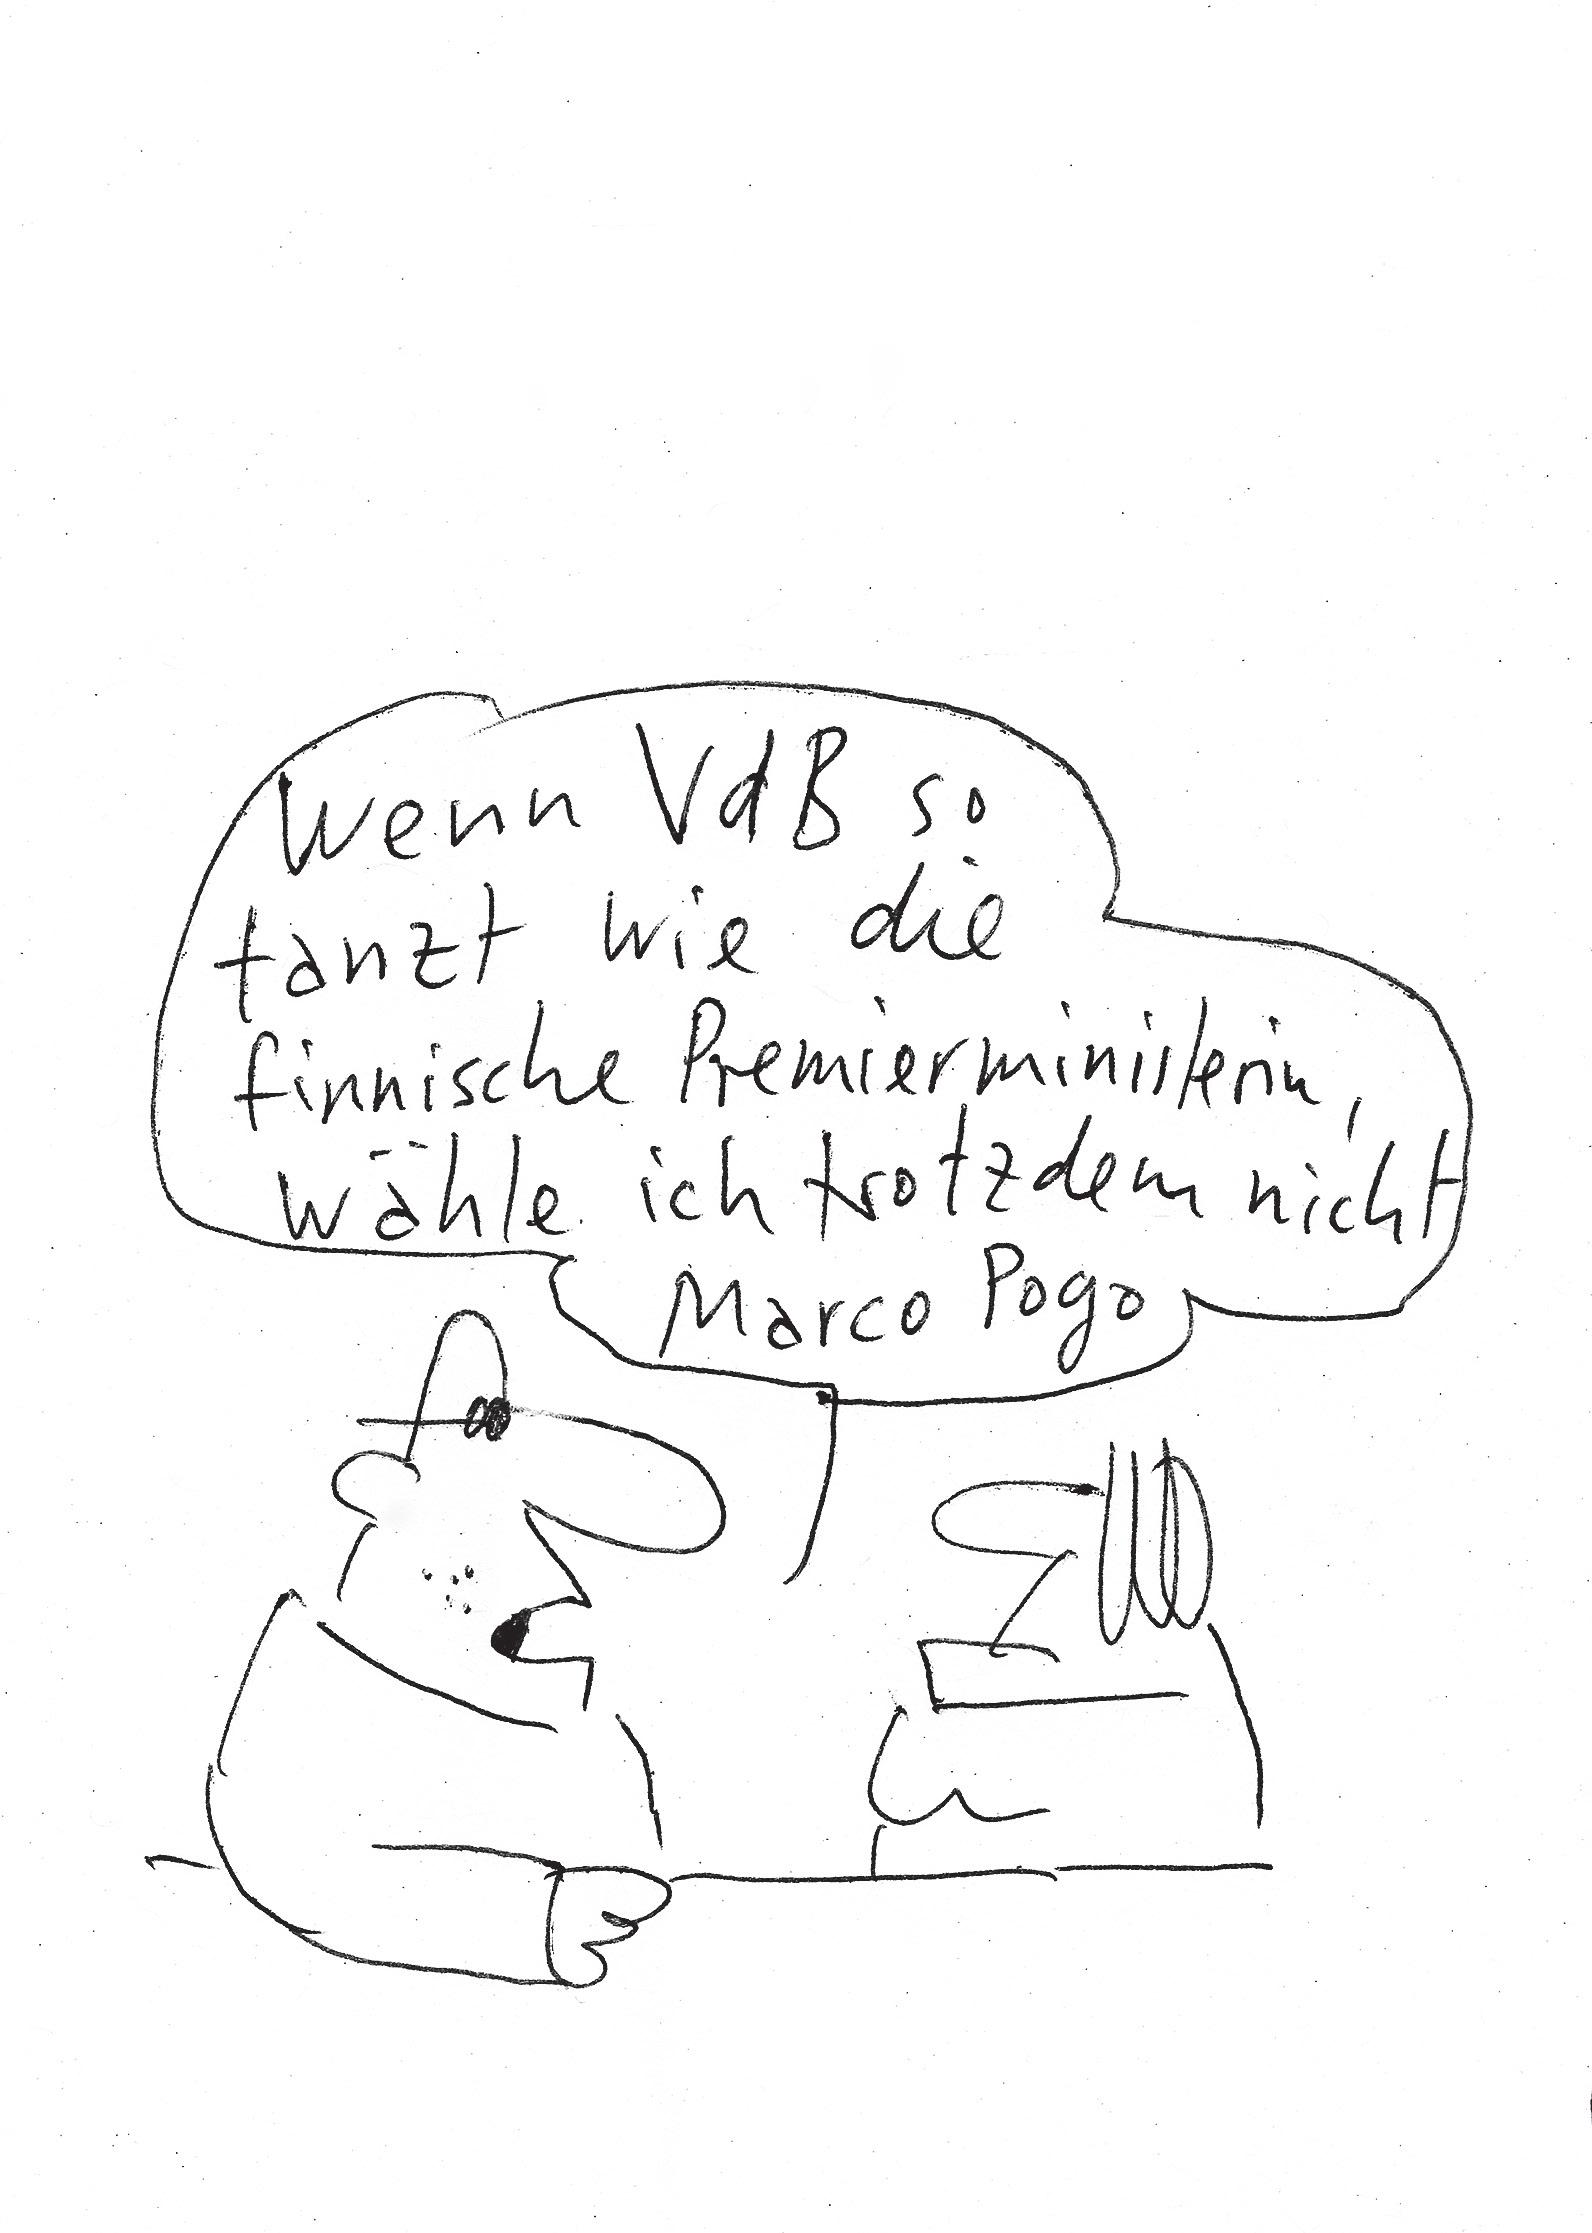 Wenn VdB so
tanzt wie die
finnische Premierministerin,
wähle ich trotzdem nicht
Marco Pogo